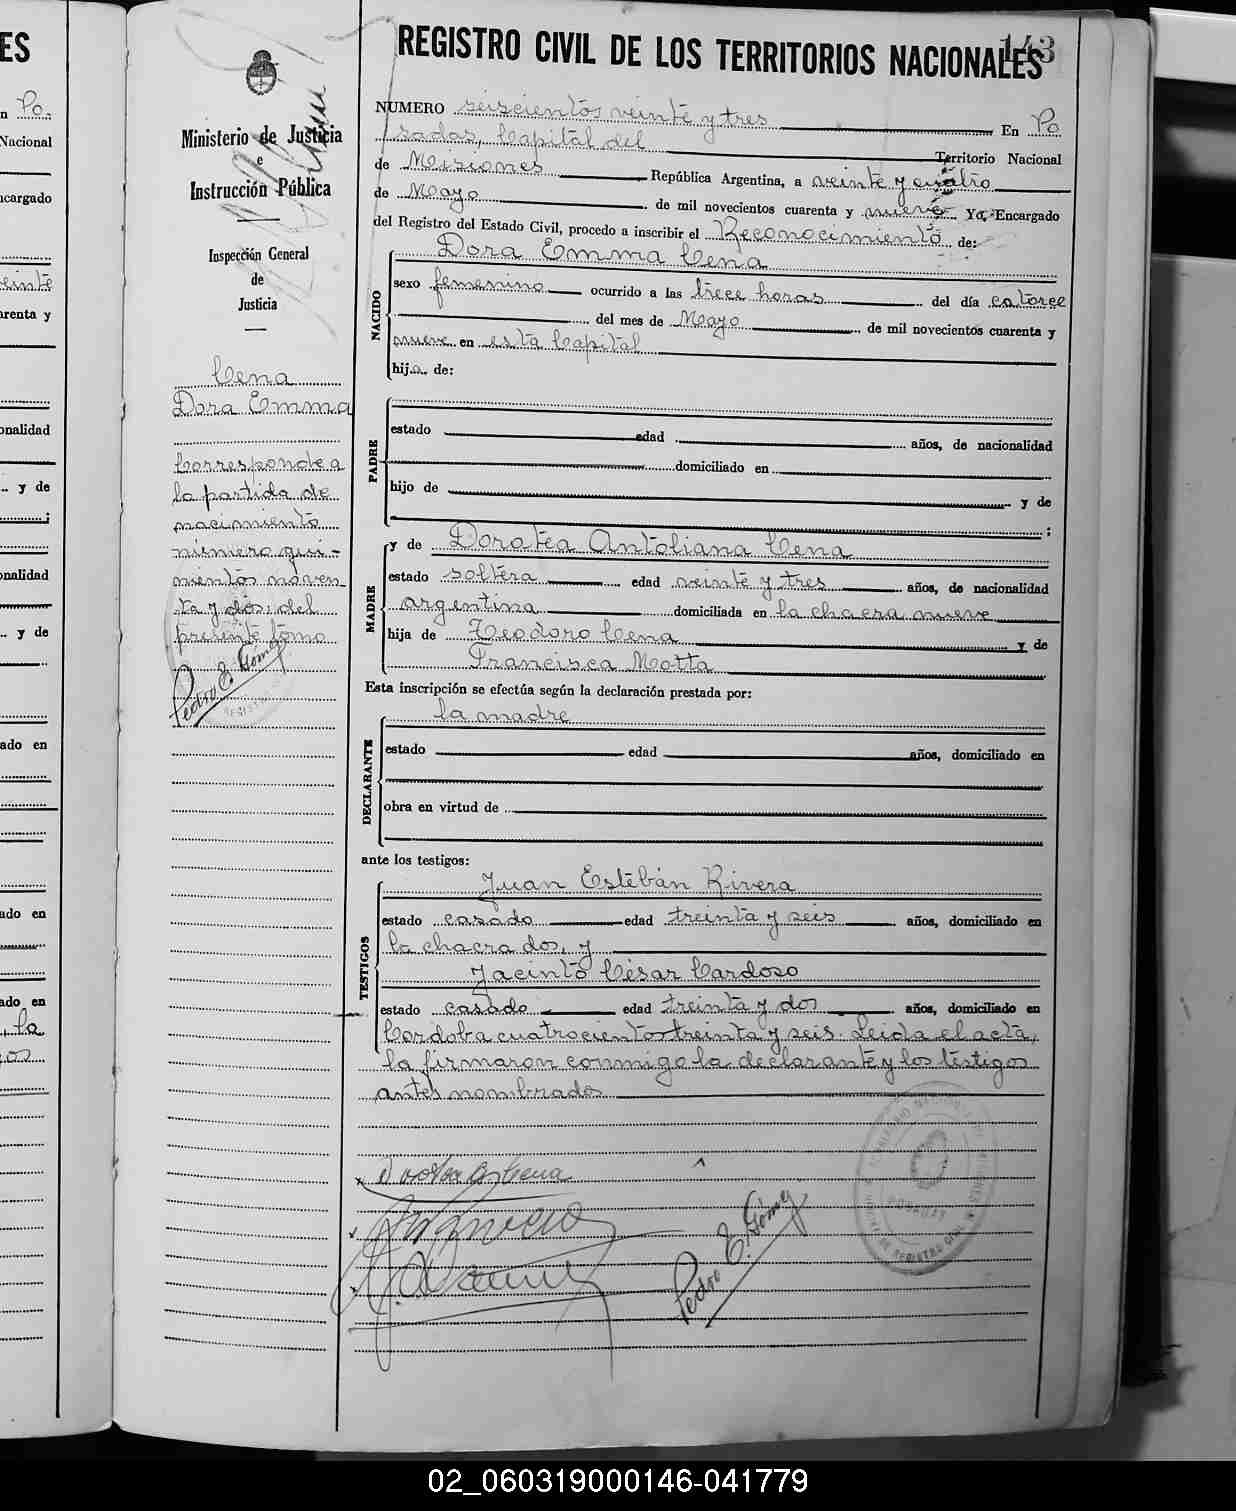 143
REGISTRO CIVIL DE LOS TERRITORIOS NACIONALES
Ministerio de Justicia
e
Instrucción Pública
Inspección General
de
Justicia
Cena
Dora Emma
Corresponde a
la partida de
nacimiento
número qui-
nientos noven-
ta y dós, del
presente tomo
Pedro E. Gómez
NUMERO seiscientos veinte y tres En Po
sadas, Capital del Territorio Nacional
de Misiones República Argentina, a veinte y cuatro
de Mayo de mil novecientos cuarenta y nueve Yo, Encargado
del Registro del Estado Civil, procedo a inscribir el Reconocimiento de:
NACIDO
Dora Emma Cena
sexo femenino ocurrido a las trece horas del día catorce
del mes de Mayo de mil novecientos cuarenta y
nueve en esta Capital
hija de:
PADRE
estado edad años, de nacionalidad
domiciliado en
hijo de y de
;
MADRE
y de Dorotea Antoliana Cena
estado soltera edad veinte y tres años, de nacionalidad
argentina domiciliada en la chacra nueve
hija de Teodoro Cena y de
Francisca Motta
Esta inscripción se efectúa según la declaración prestada por:
DECLARANTE
la madre
estado edad años, domiciliado en
obra en virtud de
ante los testigos:
TESTIGOS
Juan Estéban Rivera
estado casado edad treinta y seis años, domiciliado en
la chacra dos, y
Jacinto César Cardoso
estado casado edad treinta y dos años, domiciliado en
Cordoba cuatrocientos treinta y seis. Leida el acta,
la firmaron conmigo la declarante y los testigos
antes nombrados
Dorotea A. Cena
Pedro E. Gómez
ES
n Po.
Nacional
ncargado
einte
arenta y
onalidad
y de
;
onalidad
y de
ado en
ado en
ado en
, la
os
02_060319000146-041779